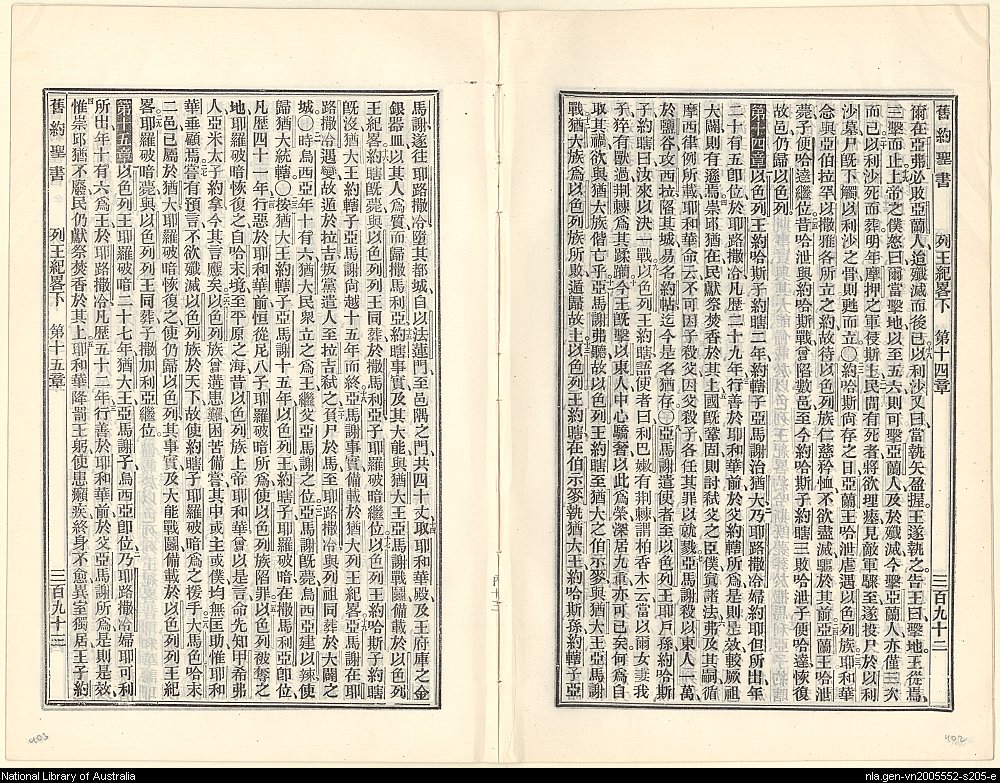 舊約聖書 列王紀畧下 第十四章 三百九十二
爾在亞弗必敗亞蘭人迨殲滅而後已以利沙又曰當執矢盈握王遂執之告王曰擊地王從焉
三擊而止上帝之僕怒曰爾當擊地以至五六則可擊亞蘭人及於殲滅今擊亞蘭人亦僅三次
而已以利沙死而葬明年摩押之軍侵斯土民間有死者將欲埋瘞見敵軍驟至遂投尸於以利
沙墓尸既下觸以利沙之骨則甦而立〇約哈斯尚存之日亞蘭王哈泄虐遇以色列族耶和華
念與亞伯拉罕以撒雅各所立之約故待以色列族仁慈矜恤不欲盡滅驅於其前亞蘭王哈泄
薨子便哈達繼位昔哈泄與約哈斯戰曾陷數邑至今約哈斯子約轄三敗哈泄子便哈達恢復
故邑仍歸以色列
第十四章以色列王約哈斯子約轄二年約轄子亞馬謝治猶大乃耶路撒冷婦約耶但所出年
二十有五卽位於耶路撒冷凡歷二十九年行善於耶和華前於父約轄所爲是則是效較厥祖
大闢則有遜焉崇邱猶在民獻祭焚香於其上國既鞏固則討弒父之臣僕寘諸法弗及其嗣循
摩西律例所載耶和華命云不可因子殺父因父殺子各任其罪以就戮亞馬謝殺以東人一萬
於鹽谷攻西拉陷其城易名約帖迄今是名猶存〇亞馬謝遣使者至以色列王耶戶孫約哈斯
子約轄曰汝來以決一戰以色列王約轄語使者曰利巴嫩有荆棘謂柏香木云當以爾女妻我
子猝有獸過荆棘爲其蹂躪今王既擊以東人中心驕奢以此爲榮深居九重亦可已矣何爲自
取其禍欲與猶大族偕亡乎亞馬謝弗聽故以色列王約轄至猶大之伯示麥與猶大王亞馬謝
戰猶大族爲以色列族所敗遁歸故土以色列王約轄在伯示麥執猶大王約哈斯孫約轄子亞
馬謝遂往耶路撒冷墮其都城自以法蓮門至邑隅之門共四十丈取耶和華殿及王府庫之金
銀器皿以其人爲質而歸撒馬利亞約轄事實及其大能與猶大王亞馬謝戰鬬備載於以色列
王紀畧約轄既薨與以色列列王同葬於撒馬利亞子耶羅破暗繼位以色列王約哈斯子約轄
既沒猶大王約轄子亞馬謝尚越十五年而終亞馬謝事實備載於猶大列王紀畧亞馬謝在耶
路撒冷遇變故遁於拉吉叛黨遣人至拉吉弒之負尸於馬至耶路撒冷與列祖同葬於大闢之
城〇時烏西亞年十有六猶大民衆立之爲王繼父亞馬謝之位亞馬謝既薨烏西亞建以辣使
歸猶大統轄〇按猶大王約轄子亞馬謝十五年以色列王約轄子耶羅破暗在撒馬利亞卽位
凡歷四十一年行惡於耶和華前恒從尼八子耶羅破暗所爲使以色列族陷罪以色列被奪之
地耶羅破暗恢復之自哈末境至平原之海昔以色列族上帝耶和華曾以是言命先知甲希弗
人亞米太子約拿今其言應矣以色列族曾遘患難困苦備嘗其中或主或僕均無匡助惟耶和
華垂顧焉嘗有預言不欲殲滅以色列族於天下故使約轄子耶羅破暗爲之援手大馬色哈末
二邑已屬於猶大耶羅破暗恢復之使仍歸以色列族其事實及大能戰鬬備載於以色列列王紀
畧耶羅破暗薨與以色列列王同葬子撒加利亞繼位
第十五章以色列王耶羅破暗二十七年猶大王亞馬謝子烏西亞卽位乃耶路撒冷婦耶可利
所出年十有六爲王於耶路撒冷凡歷五十二年行善於耶和華前於父亞馬謝所爲是則是效
惟崇邱猶不廢民仍獻祭焚香於其上耶和華降罰王躬使患癩疾終身不愈異室獨居王子約
舊約聖書 列王紀畧下 第十五章 三百九十三
403
402
National Library of Australia
nla.gen-vn2005552-s205-e